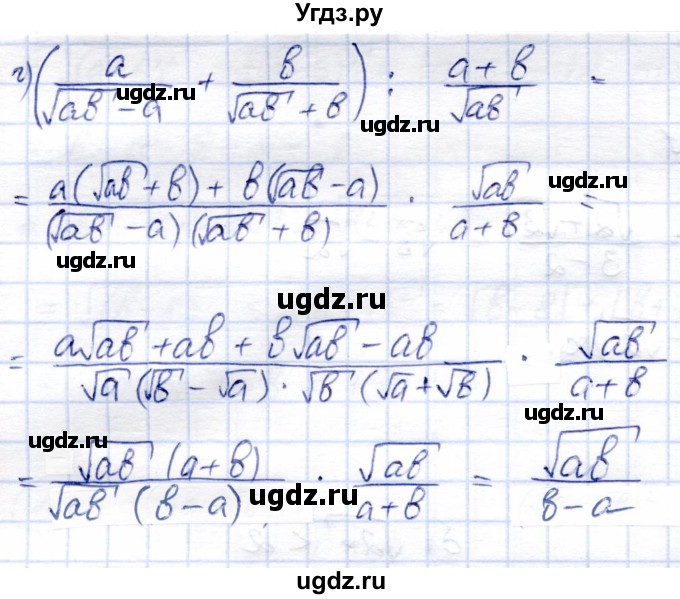 Угдз.ру
г) (a/(√ab − a) + b/(√ab + b)) : (a + b)/√ab =
ugdz.ru
ugdz.ru
= (a(√ab + b) + b(√ab − a))/((√ab − a)(√ab + b)) · √ab/(a + b) =
ugdz.ru
ugdz.ru
ugdz.ru
= (a√ab + ab + b√ab − ab)/(√a(√b − √a) · √b(√a + √b)) · √ab/(a + b)
ugdz.ru
ugdz.ru
= (√ab (a + b))/(√ab (b − a)) · √ab/(a + b) = √ab/(b − a)
ugdz.ru
ugdz.ru
ugdz.ru